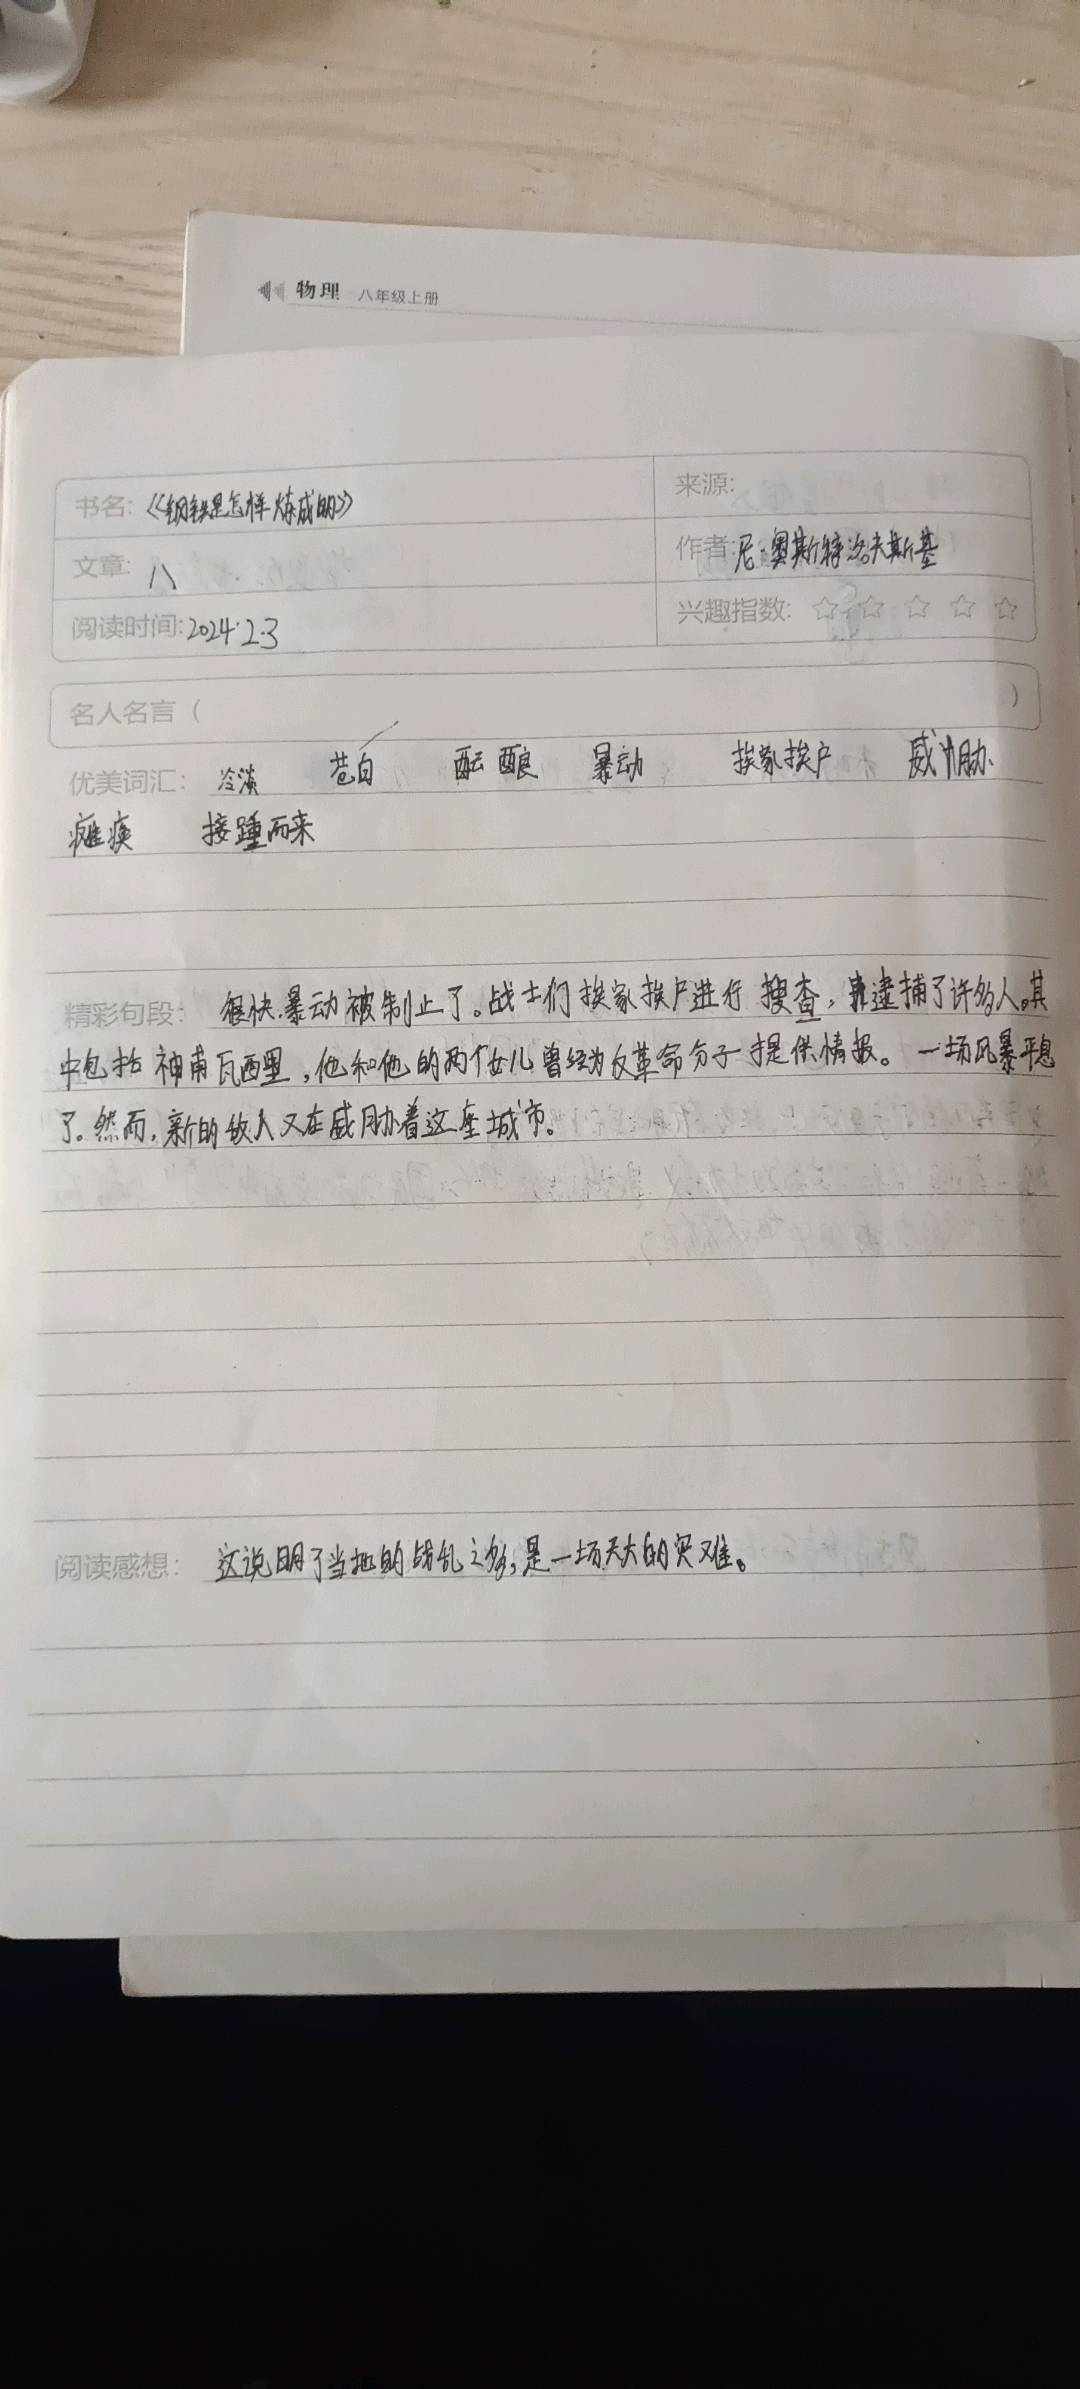 物理 八年级上册
书名:《钢铁是怎样炼成的》
来源:
文章: 八
作者: 尼·奥斯特洛夫斯基
阅读时间: 2024.2.3
兴趣指数: ☆ ☆ ☆ ☆ ☆
名人名言（ ）
优美词汇: 冷淡 苍白 酝酿 暴动 挨家挨户 威胁
瘫痪 接踵而来
精彩句段: 很快.暴动被制止了。战士们挨家挨户进行搜查，逮捕了许多人。其
中包括神甫瓦西里,他和他的两个女儿曾经为反革命分子提供情报。一场风暴平息
了。然而,新的敌人又在威胁着这座城市。
阅读感想: 这说明了当地的战乱之多,是一场天大的灾难。